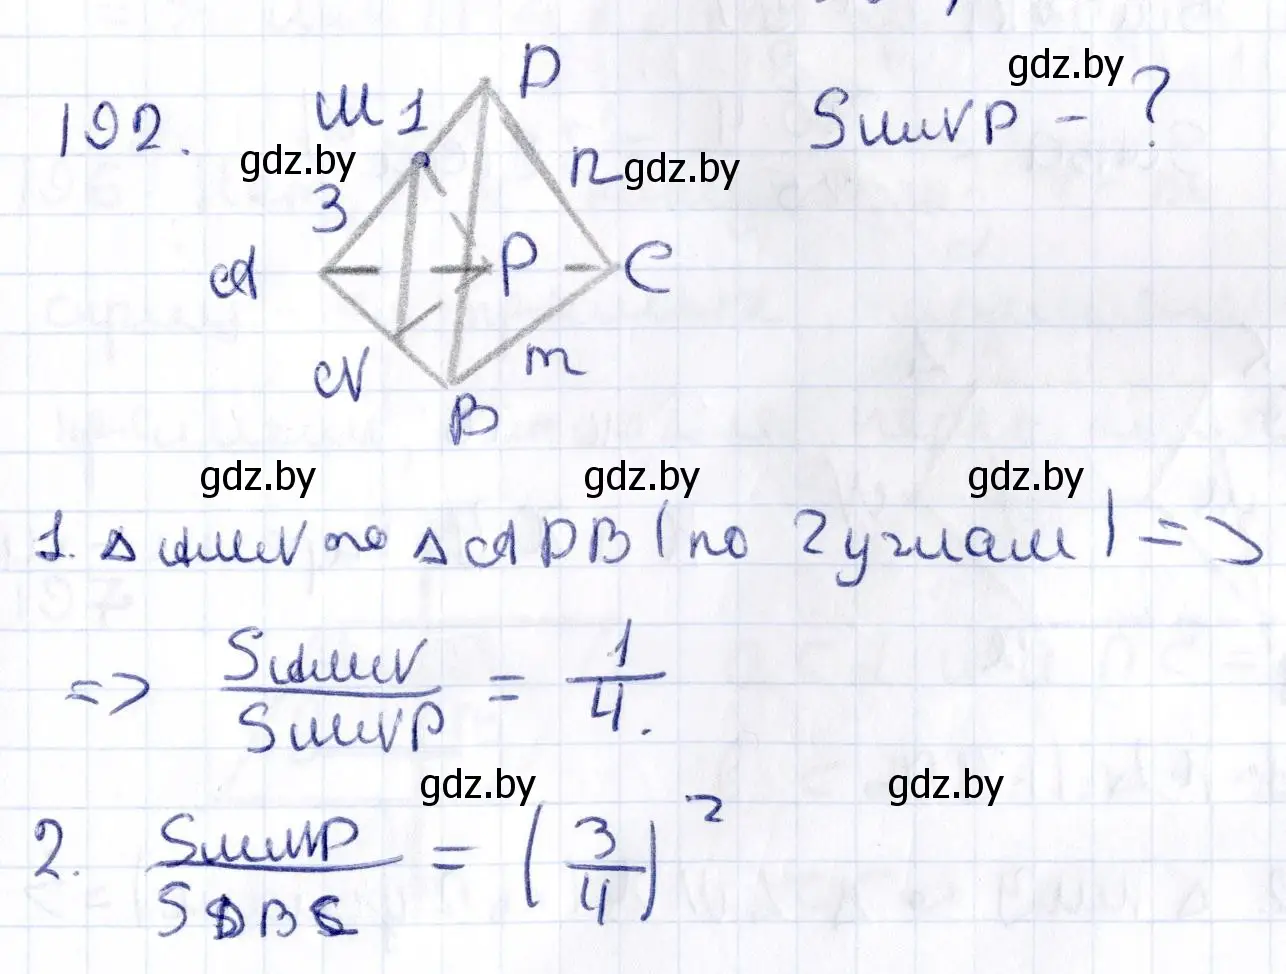 192. M 1 D gdz.by
SMNP - ?
gdz.by n gdz.by
3
A P C
N m
B
gdz.by gdz.by gdz.by
1. Δ AMN ∾ Δ ADB (по 2 углам) =>
=> SAMN / SMNP = 1 / 4.
gdz.by gdz.by
2. SMNP / SDBC = (3/4)²